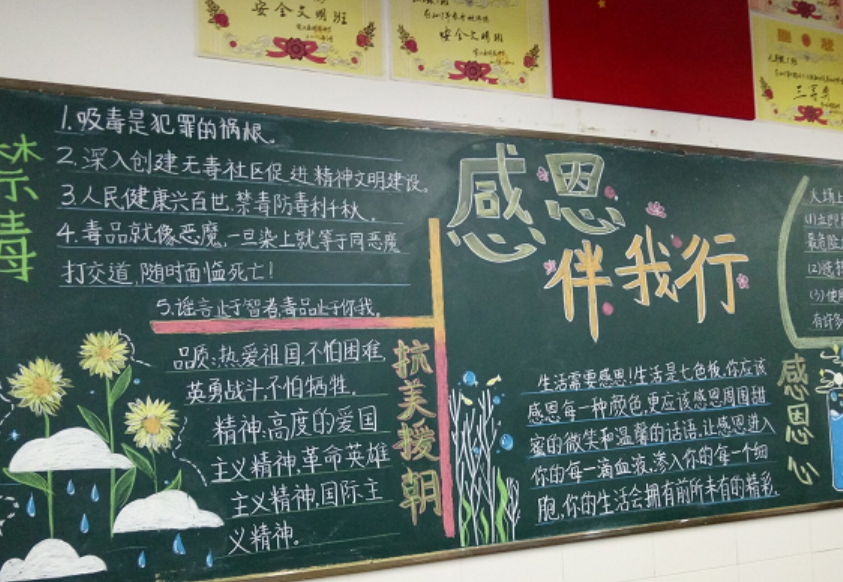 安全文明班
安全文明班
三等奖
禁毒
1.吸毒是犯罪的祸根。
2.深入创建无毒社区促进精神文明建设。
3.人民健康兴百世.禁毒防毒利千秋。
4.毒品就像恶魔,一旦染上就等于同恶魔
打交道,随时面临死亡!
5.谣言止于智者,毒品止于你我。
品质:热爱祖国,不怕困难,
英勇战斗,不怕牺牲。
精神:高度的爱国
主义精神,革命英雄
主义精神,国际主
义精神。
抗美援朝
感恩
伴我行
生活需要感恩!生活是七色板,你应该
感恩每一种颜色,更应该感恩周围甜
蜜的微笑和温馨的话语,让感恩进入
你的每一滴血液,渗入你的每一个细
胞,你的生活会拥有前所未有的精彩.
感恩心
火场上
(1)立即
靠危险
(3)使用
有许多